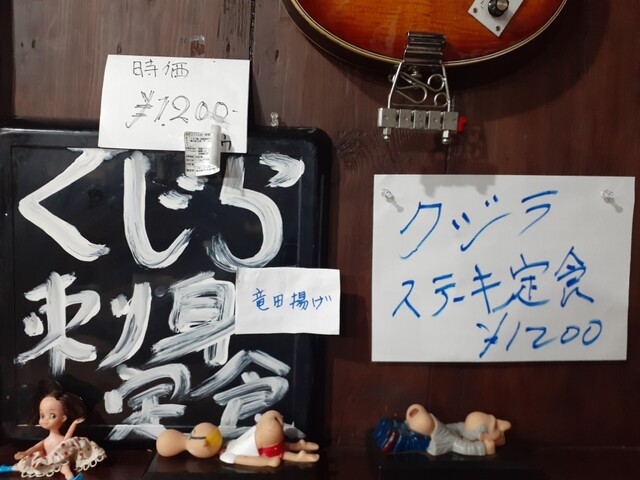 時価
¥1,200-
くじら
刺身
定食
竜田揚げ
クジラ
ステーキ定食
¥1200